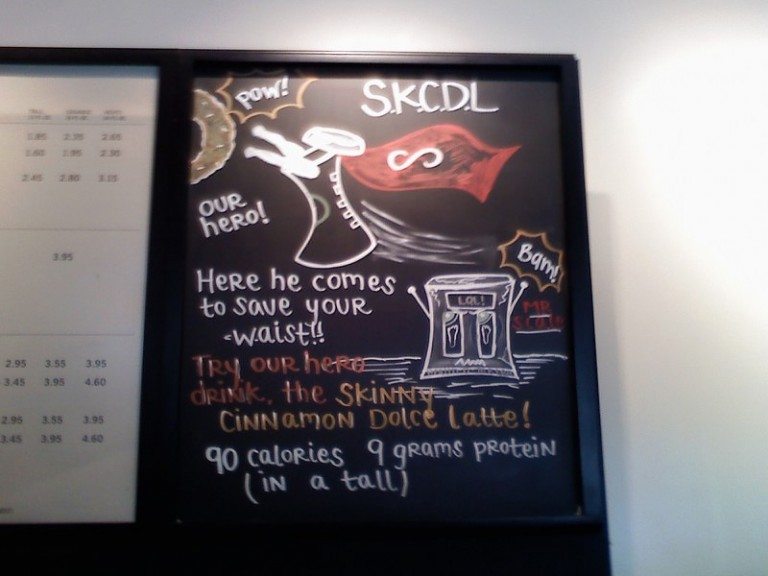 1.85 2.35 2.65
1.60 1.95 2.30
2.45 2.80 3.15
3.95
2.95 3.55 3.95
3.45 3.95 4.60
2.95 3.55 3.95
3.45 3.95 4.60
POW!
S.K.C.D.L
S
OUR
heRO!
Bam!
LOL!
MR
Scale
Here he comes
to save your
-waist!!
Try our hero
drink, the Skinny
Cinnamon Dolce latte!
90 calories 9 grams protein
(in a tall)